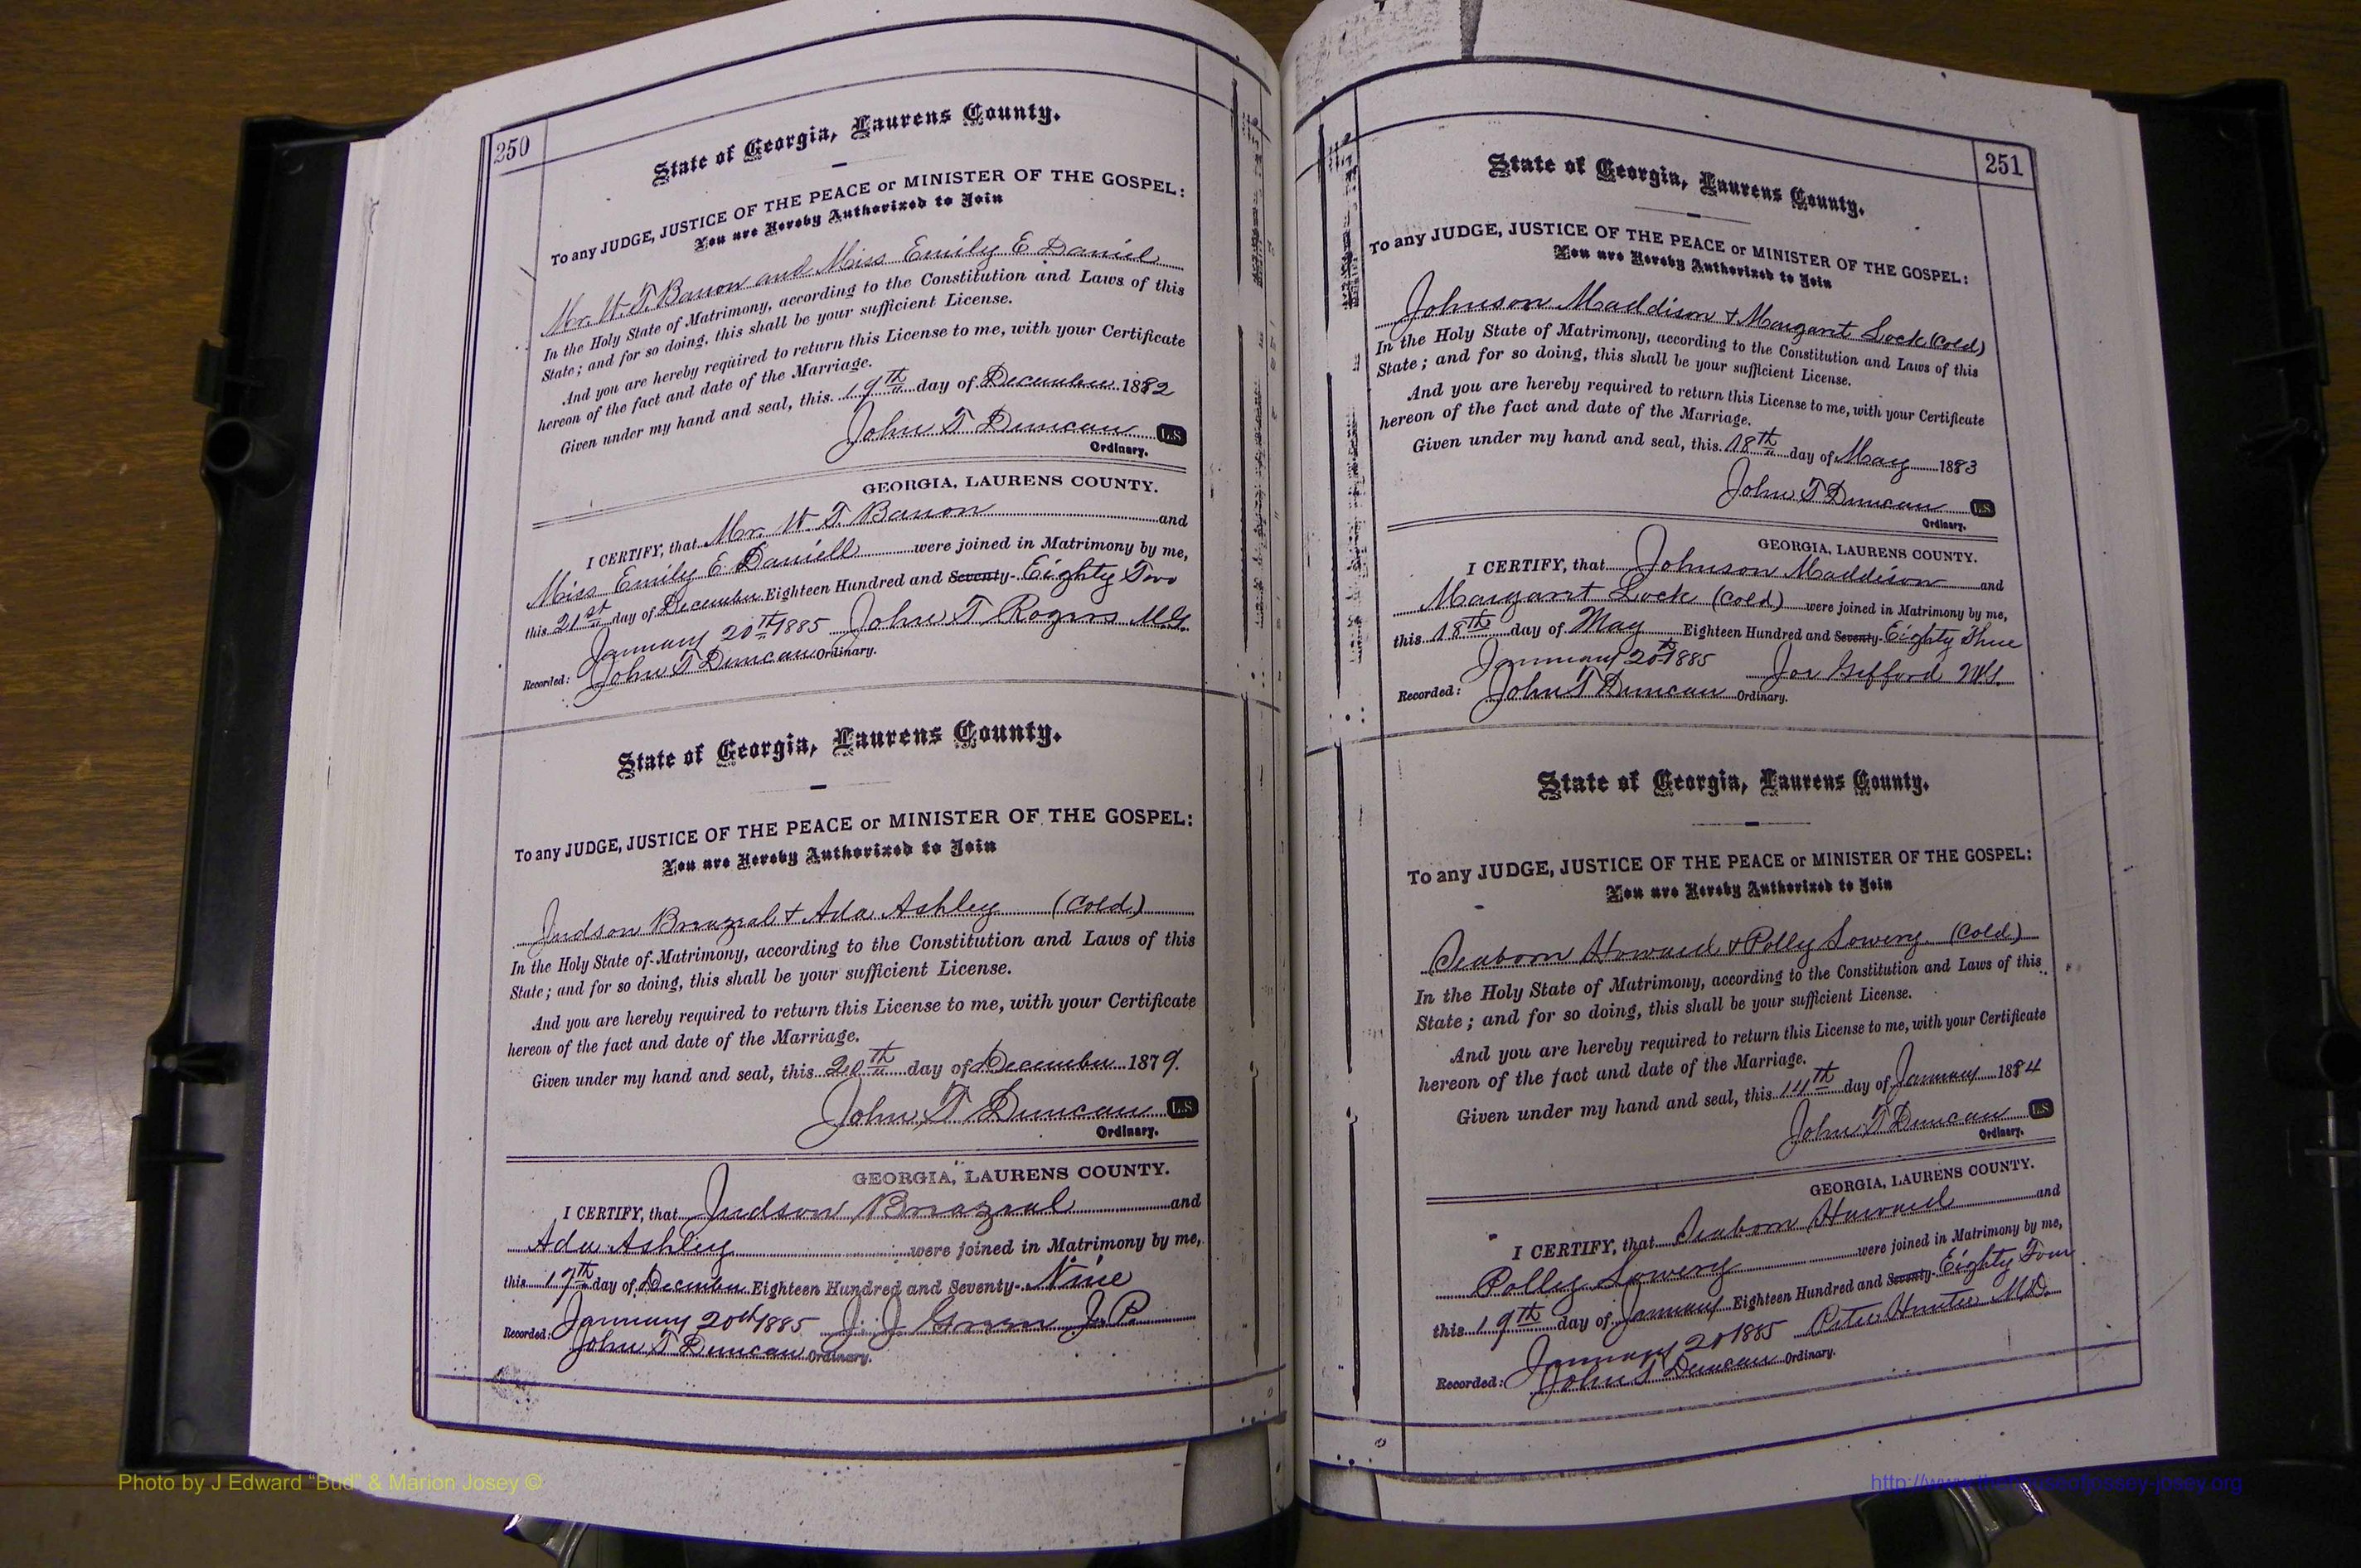 250
State of Georgia, Laurens County.
To any JUDGE, JUSTICE OF THE PEACE or MINISTER OF THE GOSPEL:
You are Hereby Authorized to Join
Mr. W. T. Barron and Miss Emily E. Daniel
In the Holy State of Matrimony, according to the Constitution and Laws of this
State; and for so doing, this shall be your sufficient License.
And you are hereby required to return this License to me, with your Certificate
hereon of the fact and date of the Marriage.
Given under my hand and seal, this 19th day of December 1882
John T Duncan L.S
Ordinary.
GEORGIA, LAURENS COUNTY.
I CERTIFY, that Mr. W. T. Barron and
Miss Emily E. Daniell were joined in Matrimony by me,
this 21st day of December Eighteen Hundred and Seventy- Eighty Two
January 20th 1885 John T Rogers M.G.
Recorded: John T Duncan Ordinary.
State of Georgia, Laurens County.
To any JUDGE, JUSTICE OF THE PEACE or MINISTER OF THE GOSPEL:
You are Hereby Authorized to Join
Judson Brazeal + Ada Ashley (Cold)
In the Holy State of Matrimony, according to the Constitution and Laws of this
State; and for so doing, this shall be your sufficient License.
And you are hereby required to return this License to me, with your Certificate
hereon of the fact and date of the Marriage.
Given under my hand and seal, this 20th day of December 1879.
John T Duncan L.S
Ordinary.
GEORGIA, LAURENS COUNTY.
I CERTIFY, that Judson Brazeal and
Ada Ashley were joined in Matrimony by me,
this 17th day of December Eighteen Hundred and Seventy- Nine
January 20th 1885 J. J. Green J. P.
Recorded: John T Duncan Ordinary.
251
State of Georgia, Laurens County.
To any JUDGE, JUSTICE OF THE PEACE or MINISTER OF THE GOSPEL:
You are Hereby Authorized to Join
Johnson Maddison + Margant Lock (Cold)
In the Holy State of Matrimony, according to the Constitution and Laws of this
State; and for so doing, this shall be your sufficient License.
And you are hereby required to return this License to me, with your Certificate
hereon of the fact and date of the Marriage.
Given under my hand and seal, this 18th day of May 1883
John T Duncan L.S
Ordinary.
GEORGIA, LAURENS COUNTY.
I CERTIFY, that Johnson Maddison and
Margant Lock (Cold) were joined in Matrimony by me,
this 18th day of May Eighteen Hundred and Seventy- Eighty Three
January 20th 1885 Joe Gifford
Recorded: John T Duncan Ordinary.
State of Georgia, Laurens County.
To any JUDGE, JUSTICE OF THE PEACE or MINISTER OF THE GOSPEL:
You are Hereby Authorized to Join
Seaborn Howard + Polly Lowery (Cold)
In the Holy State of Matrimony, according to the Constitution and Laws of this
State; and for so doing, this shall be your sufficient License.
And you are hereby required to return this License to me, with your Certificate
hereon of the fact and date of the Marriage.
Given under my hand and seal, this 14th day of January 1884
John T Duncan L.S
Ordinary.
GEORGIA, LAURENS COUNTY.
I CERTIFY, that Seaborn Howard and
Polley Lowery were joined in Matrimony by me,
this 19th day of January Eighteen Hundred and Seventy- Eighty Four
January 20 1885 Peter Hunter
Recorded: John T Duncan Ordinary.
Photo by J Edward “Bud” & Marion Josey ©
http://www.thehouseofjossey-josey.org